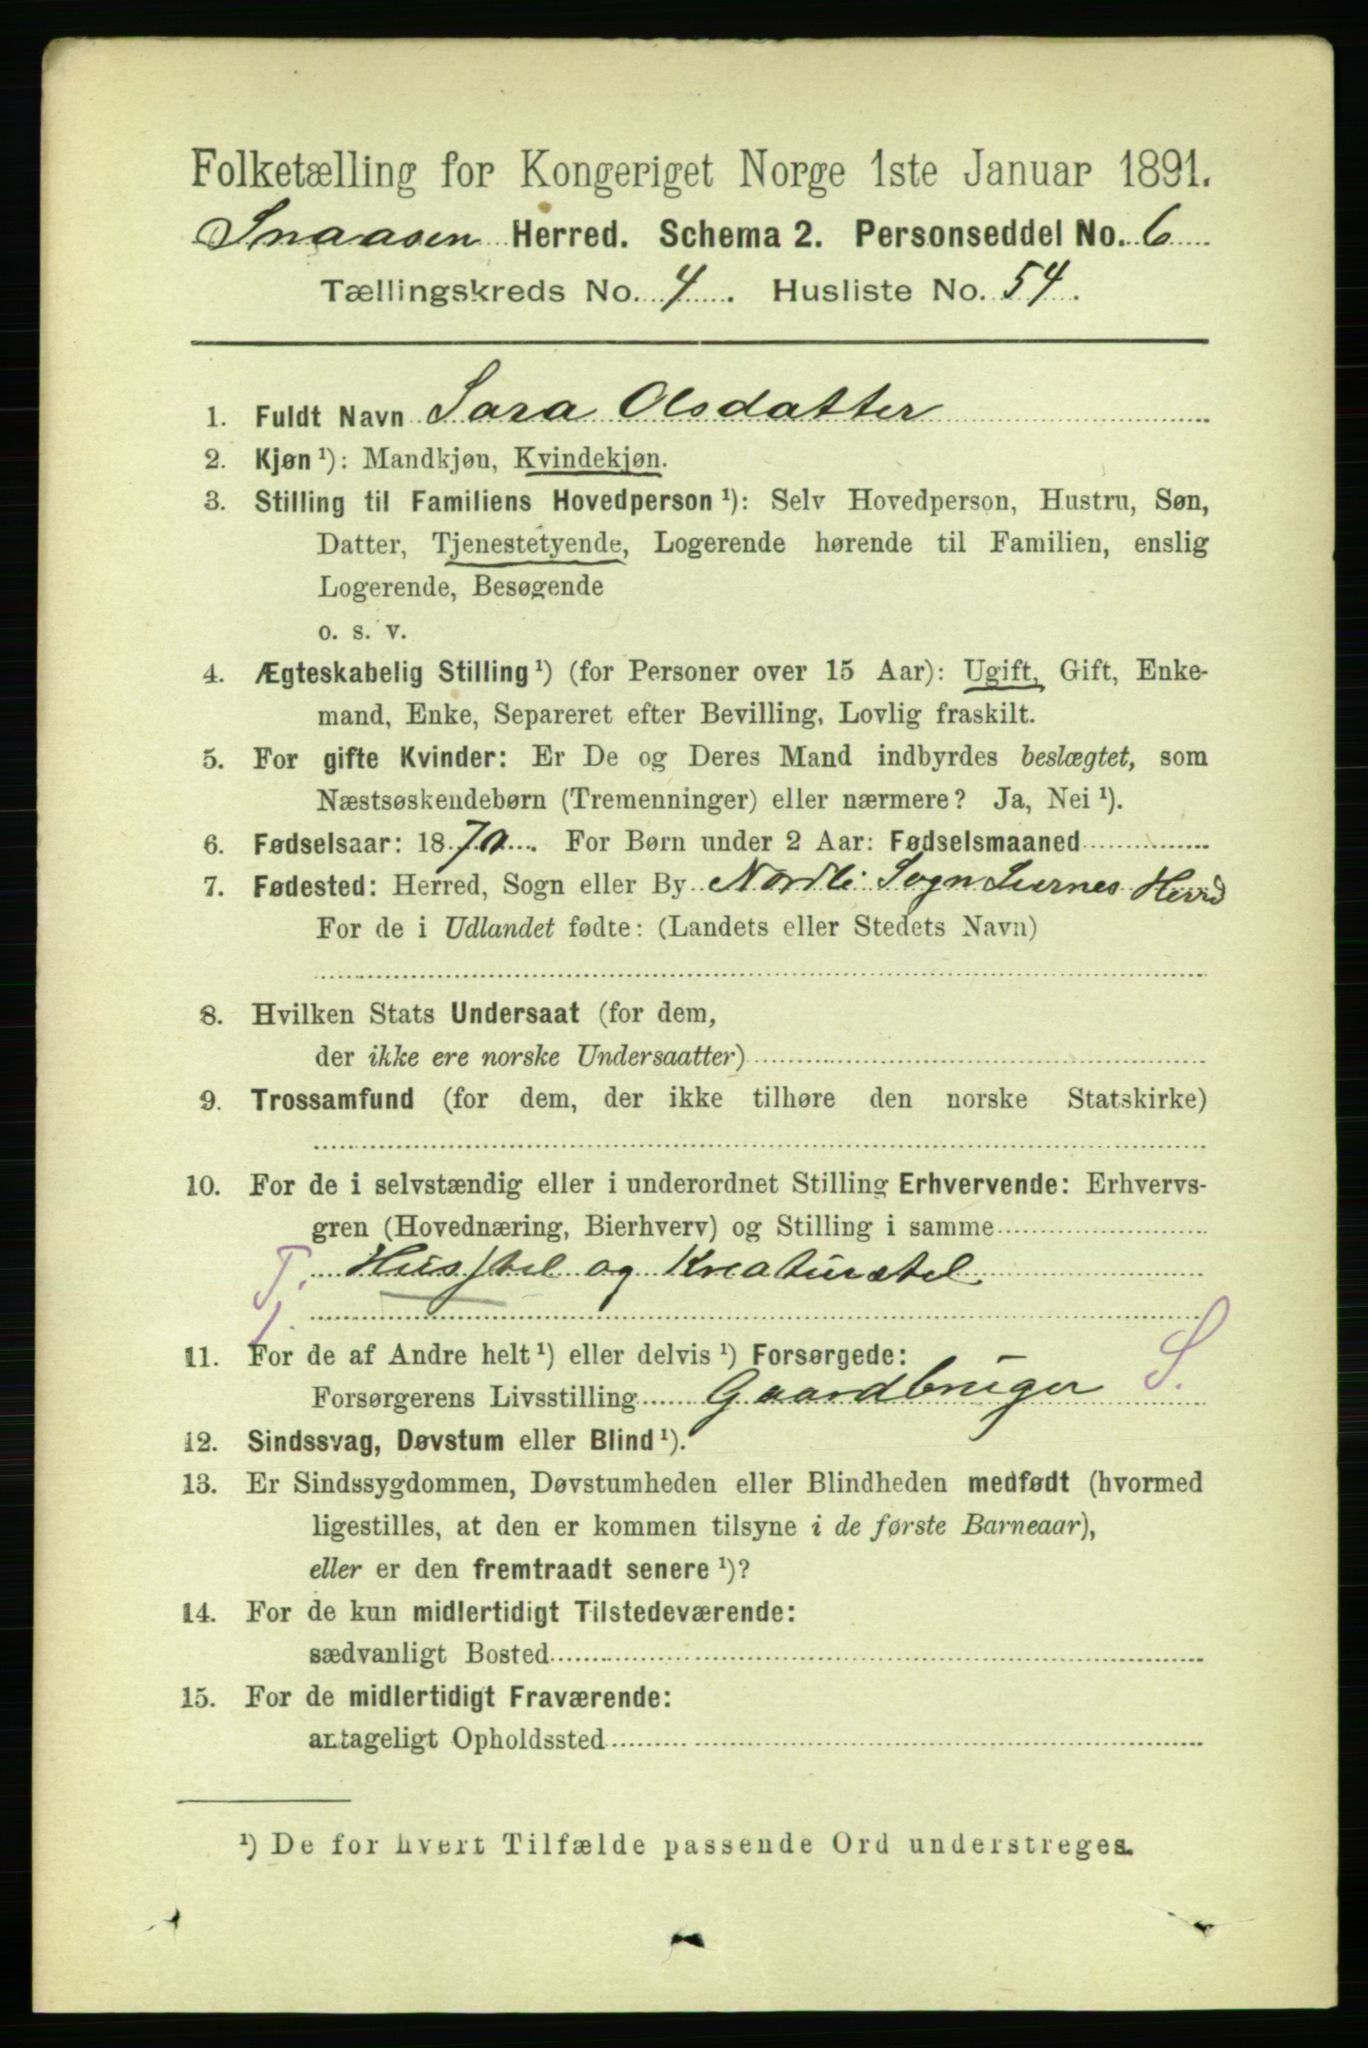 Folketælling for Kongeriget Norge 1ste Januar 1891.
Snaasen Herred. Schema 2. Personseddel No. 6
Tællingskreds No. 4. Husliste No. 54.
1. Fuldt Navn Sara Olsdatter
2. Kjøn ¹): Mandkjøn, Kvindekjøn.
3. Stilling til Familiens Hovedperson ¹): Selv Hovedperson, Hustru, Søn,
Datter, Tjenestetyende, Logerende hørende til Familien, enslig
Logerende, Besøgende
o. s. v.
4. Ægteskabelig Stilling ¹) (for Personer over 15 Aar): Ugift, Gift, Enke-
mand, Enke, Separeret efter Bevilling, Lovlig fraskilt.
5. For gifte Kvinder: Er De og Deres Mand indbyrdes beslægtet, som
Næstsøskendebørn (Tremenninger) eller nærmere? Ja, Nei ¹).
6. Fødselsaar: 1870. For Børn under 2 Aar: Fødselsmaaned
7. Fødested: Herred, Sogn eller By Nordli Sogn Liernes Herrd
For de i Udlandet fødte: (Landets eller Stedets Navn)
8. Hvilken Stats Undersaat (for dem,
der ikke ere norske Undersaatter)
9. Trossamfund (for dem, der ikke tilhøre den norske Statskirke)
10. For de i selvstændig eller i underordnet Stilling Erhvervende: Erhvervs-
gren (Hovednæring, Bierhverv) og Stilling i samme
Husstel og Kreaturstel
Tj.
11. For de af Andre helt ¹) eller delvis ¹) Forsørgede:
Forsørgerens Livsstilling Gaardbruger S.
12. Sindssvag, Døvstum eller Blind ¹).
13. Er Sindssygdommen, Døvstumheden eller Blindheden medfødt (hvormed
ligestilles, at den er kommen tilsyne i de første Barneaar),
eller er den fremtraadt senere ¹)?
14. For de kun midlertidigt Tilstedeværende:
sædvanligt Bosted
15. For de midlertidigt Fraværende:
antageligt Opholdssted
¹) De for hvert Tilfælde passende Ord understreges.